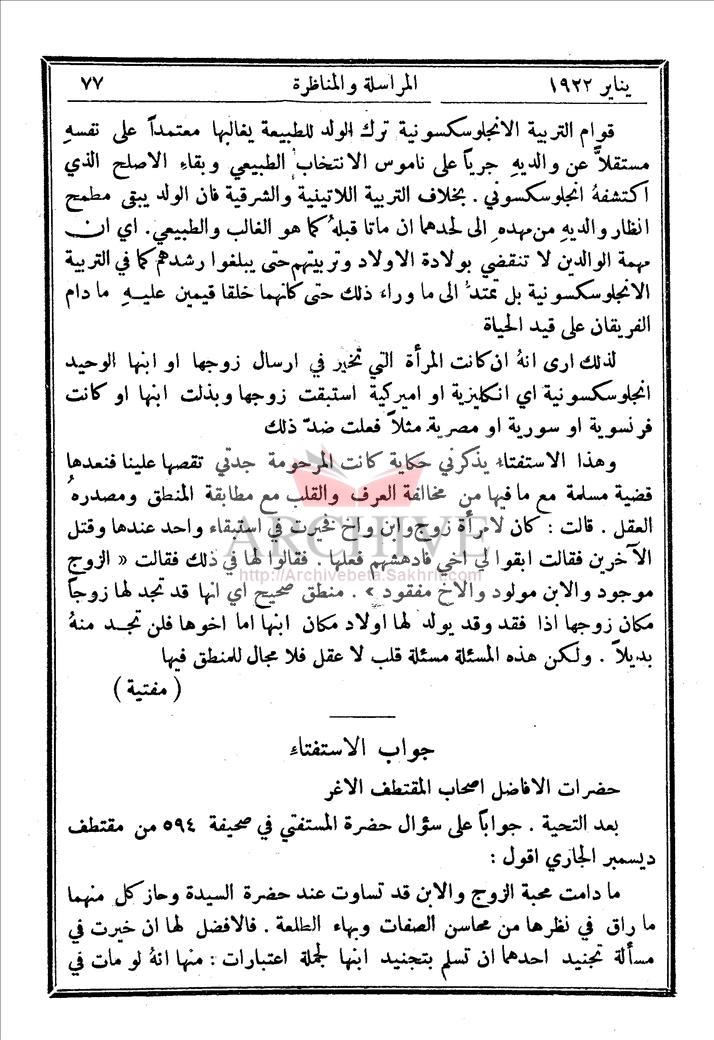 يناير ١٩٢٢
المراسلة والمناظرة
٧٧
قوام التربية الانجلوسكسونية ترك الولد للطبيعة يغالبها معتمداً على نفسهِ
مستقلاًّ عن والديهِ جرياً على ناموس الانتخاب الطبيعي وبقاءِ الاصلح الذي
اكتشفهُ انجلوسكسوني . بخلاف التربية اللاتينية والشرقية فان الولد يبقى مطمح
انظار والديهِ من مهدهِ الى لحدهما ان ماتا قبلهُ كما هو الغالب والطبيعي. اي ان
مهمة الوالدين لا تنقضي بولادة الاولاد وتربيتهم حتى يبلغوا رشدهم كما في التربية
الانجلوسكسونية بل تمتدُّ الى ما وراءَ ذلك حتى كأنهما خلقا قيمين عليهِ ما دام
الفريقان على قيد الحياة
لذلك ارى انهُ ان كانت المرأة التي تخير في ارسال زوجها او ابنها الوحيد
انجلوسكسونية اي انكليزية او اميركية استبقت زوجها وبذلت ابنها او كانت
فرنسوية او سورية او مصرية مثلاً فعلت ضدّ ذلك
وهذا الاستفتاء يذكرني حكاية كانت المرحومة جدتي تقصها علينا فنعدها
قضية مسلمة مع ما فيها من مخالفة العرف والقلب مع مطابقة المنطق ومصدرهُ
العقل . قالت : كان لامرأة زوج وابن واخ خيرت في استبقاء واحد عندها وقتل
الآخرين فقالت ابقوا لي اخي فادهشهم فعلها . فقالوا لها في ذلك فقالت « الزوج
موجود والابن مولود والاخ مفقود » . منطق صحيح اي انها قد تجد لها زوجاً
مكان زوجها اذا فقد وقد يولد لها اولاد مكان ابنها اما اخوها فلن تجد منهُ
بديلاً . ولكن هذه المسئلة مسئلة قلب لا عقل فلا مجال للمنطق فيها
( مفتية )
جواب الاستفتاء
حضرات الافاضل اصحاب المقتطف الاغر
بعد التحية . جواباً على سؤال حضرة المستفتي في صحيفة ٥٩٤ من مقتطف
ديسمبر الجاري اقول :
ما دامت محبة الزوج والابن قد تساوت عند حضرة السيدة وحاز كل منهما
ما راق في نظرها من محاسن الصفات وبهاء الطلعة . فالافضل لها ان خيرت في
مسألة تجنيد احدهما ان تسلم بتجنيد ابنها لجملة اعتبارات : منها انهُ لو مات في
ARCHIVE
http://Archivebeta.Sakhrit.com